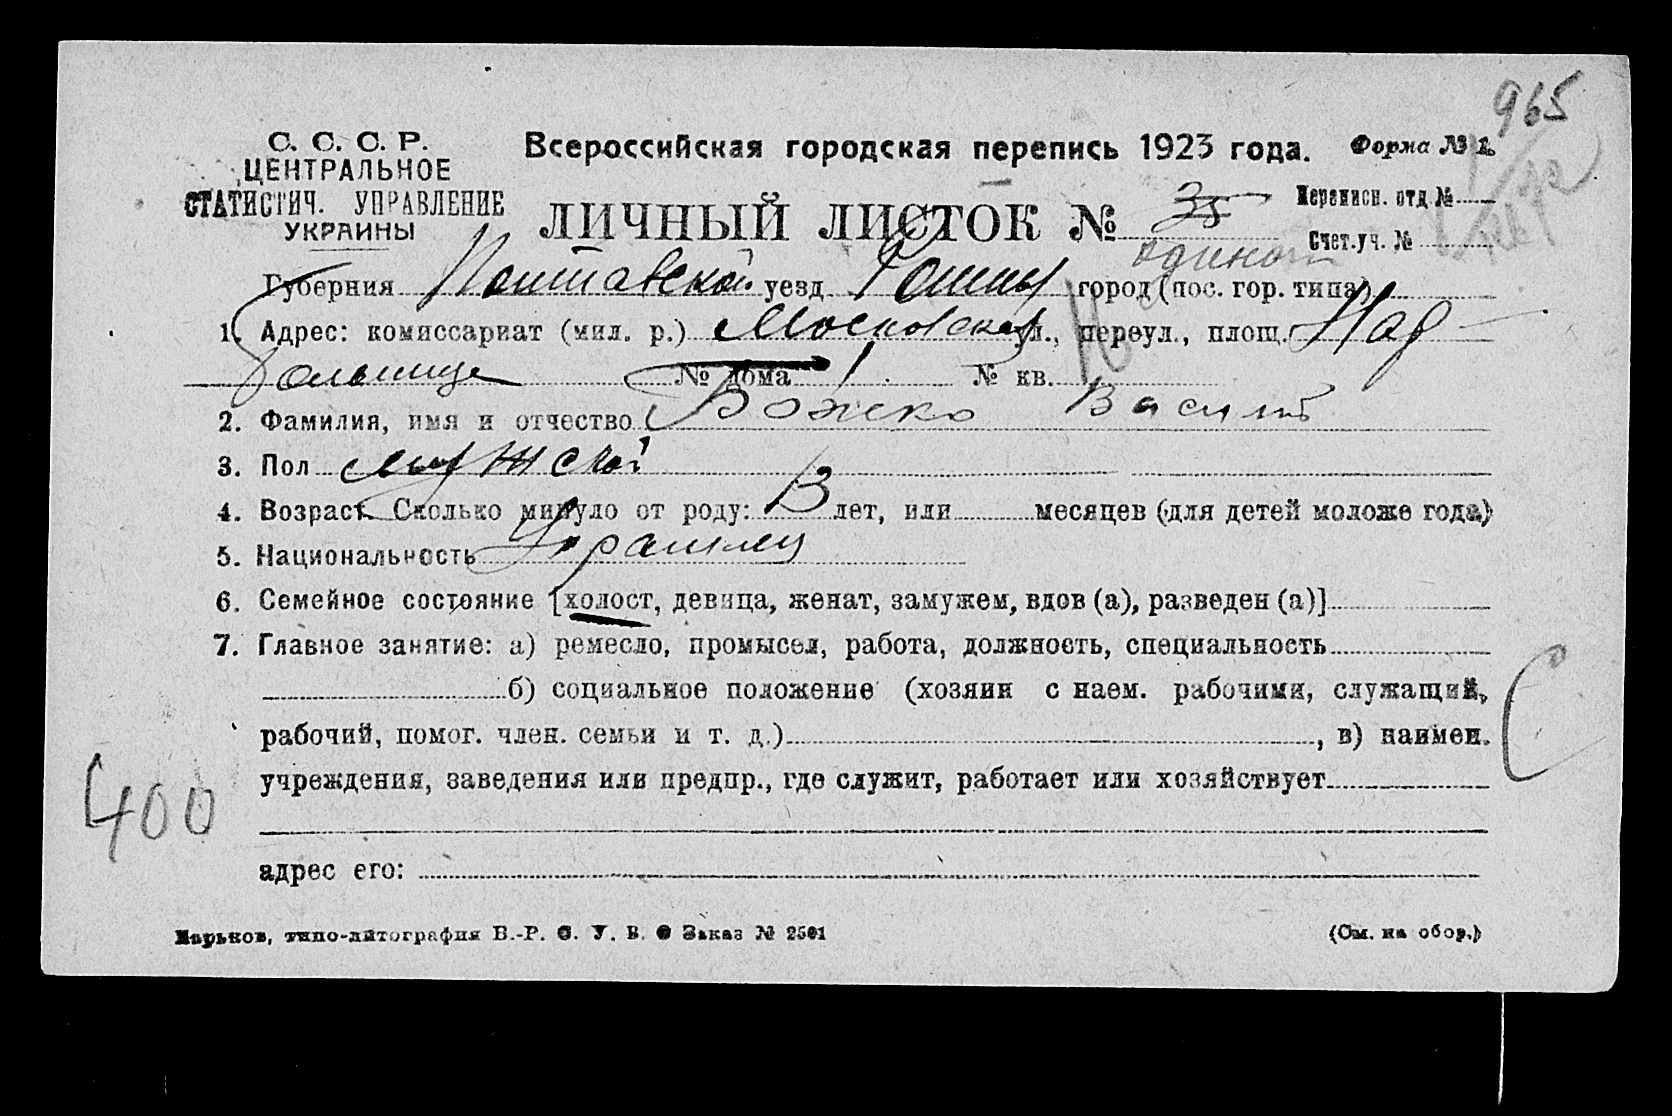 965
С. С. С. Р.
ЦЕНТРАЛЬНОЕ
СТАТИСТИЧ. УПРАВЛЕНИЕ
УКРАИНЫ
Всероссийская городская перепись 1923 года. Форма № 2.
ЛИЧНЫЙ ЛИСТОК № 35 Переписн. отд. №
одинок Счет. уч. №
Губерния Полтавской уезд Ромны город (пос. гор. типа)
1. Адрес: комиссариат (мил. р.) Московская ул., переул., площ.
больнице № дома № кв.
2. Фамилия, имя и отчество Божко Василий
3. Пол мужской
4. Возраст. Сколько минуло от роду: 13 лет, или месяцев (для детей моложе года)
5. Национальность Украинец
6. Семейное состояние [холост, девица, женат, замужем, вдов (а), разведен (а)]
7. Главное занятие: а) ремесло, промысел, работа, должность, специальность
б) социальное положение (хозяин с наем. рабочими, служащий,
рабочий, помог. член. семьи и т. д.), в) наимен.
учреждения, заведения или предпр., где служит, работает или хозяйствует
400
адрес его:
Харьков, типо-литография В.-Р. С. У. В. О Заказ № 2501 (См. на обор.)